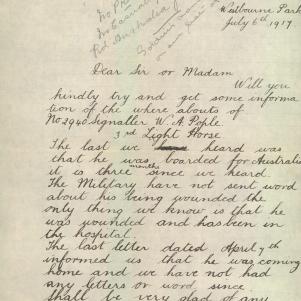 Westbourne Park
July 6th 1917
No Pr
for Australia
Dear Sir or Madam
Will you
kindly try and get some informa
tion of the where abouts of
No 2940 Signaller W. A. Pople
3rd Light Horse
The last we heard was
that he was boarded for Australia
it is three months since we heard.
The Military have not sent word
about his being wounded the
only thing we know is that he
was wounded and has been in
the hospital.
The last letter dated April 7th
informed us that he was coming
home and we have not had
any letters or word since
shall be very glad of any